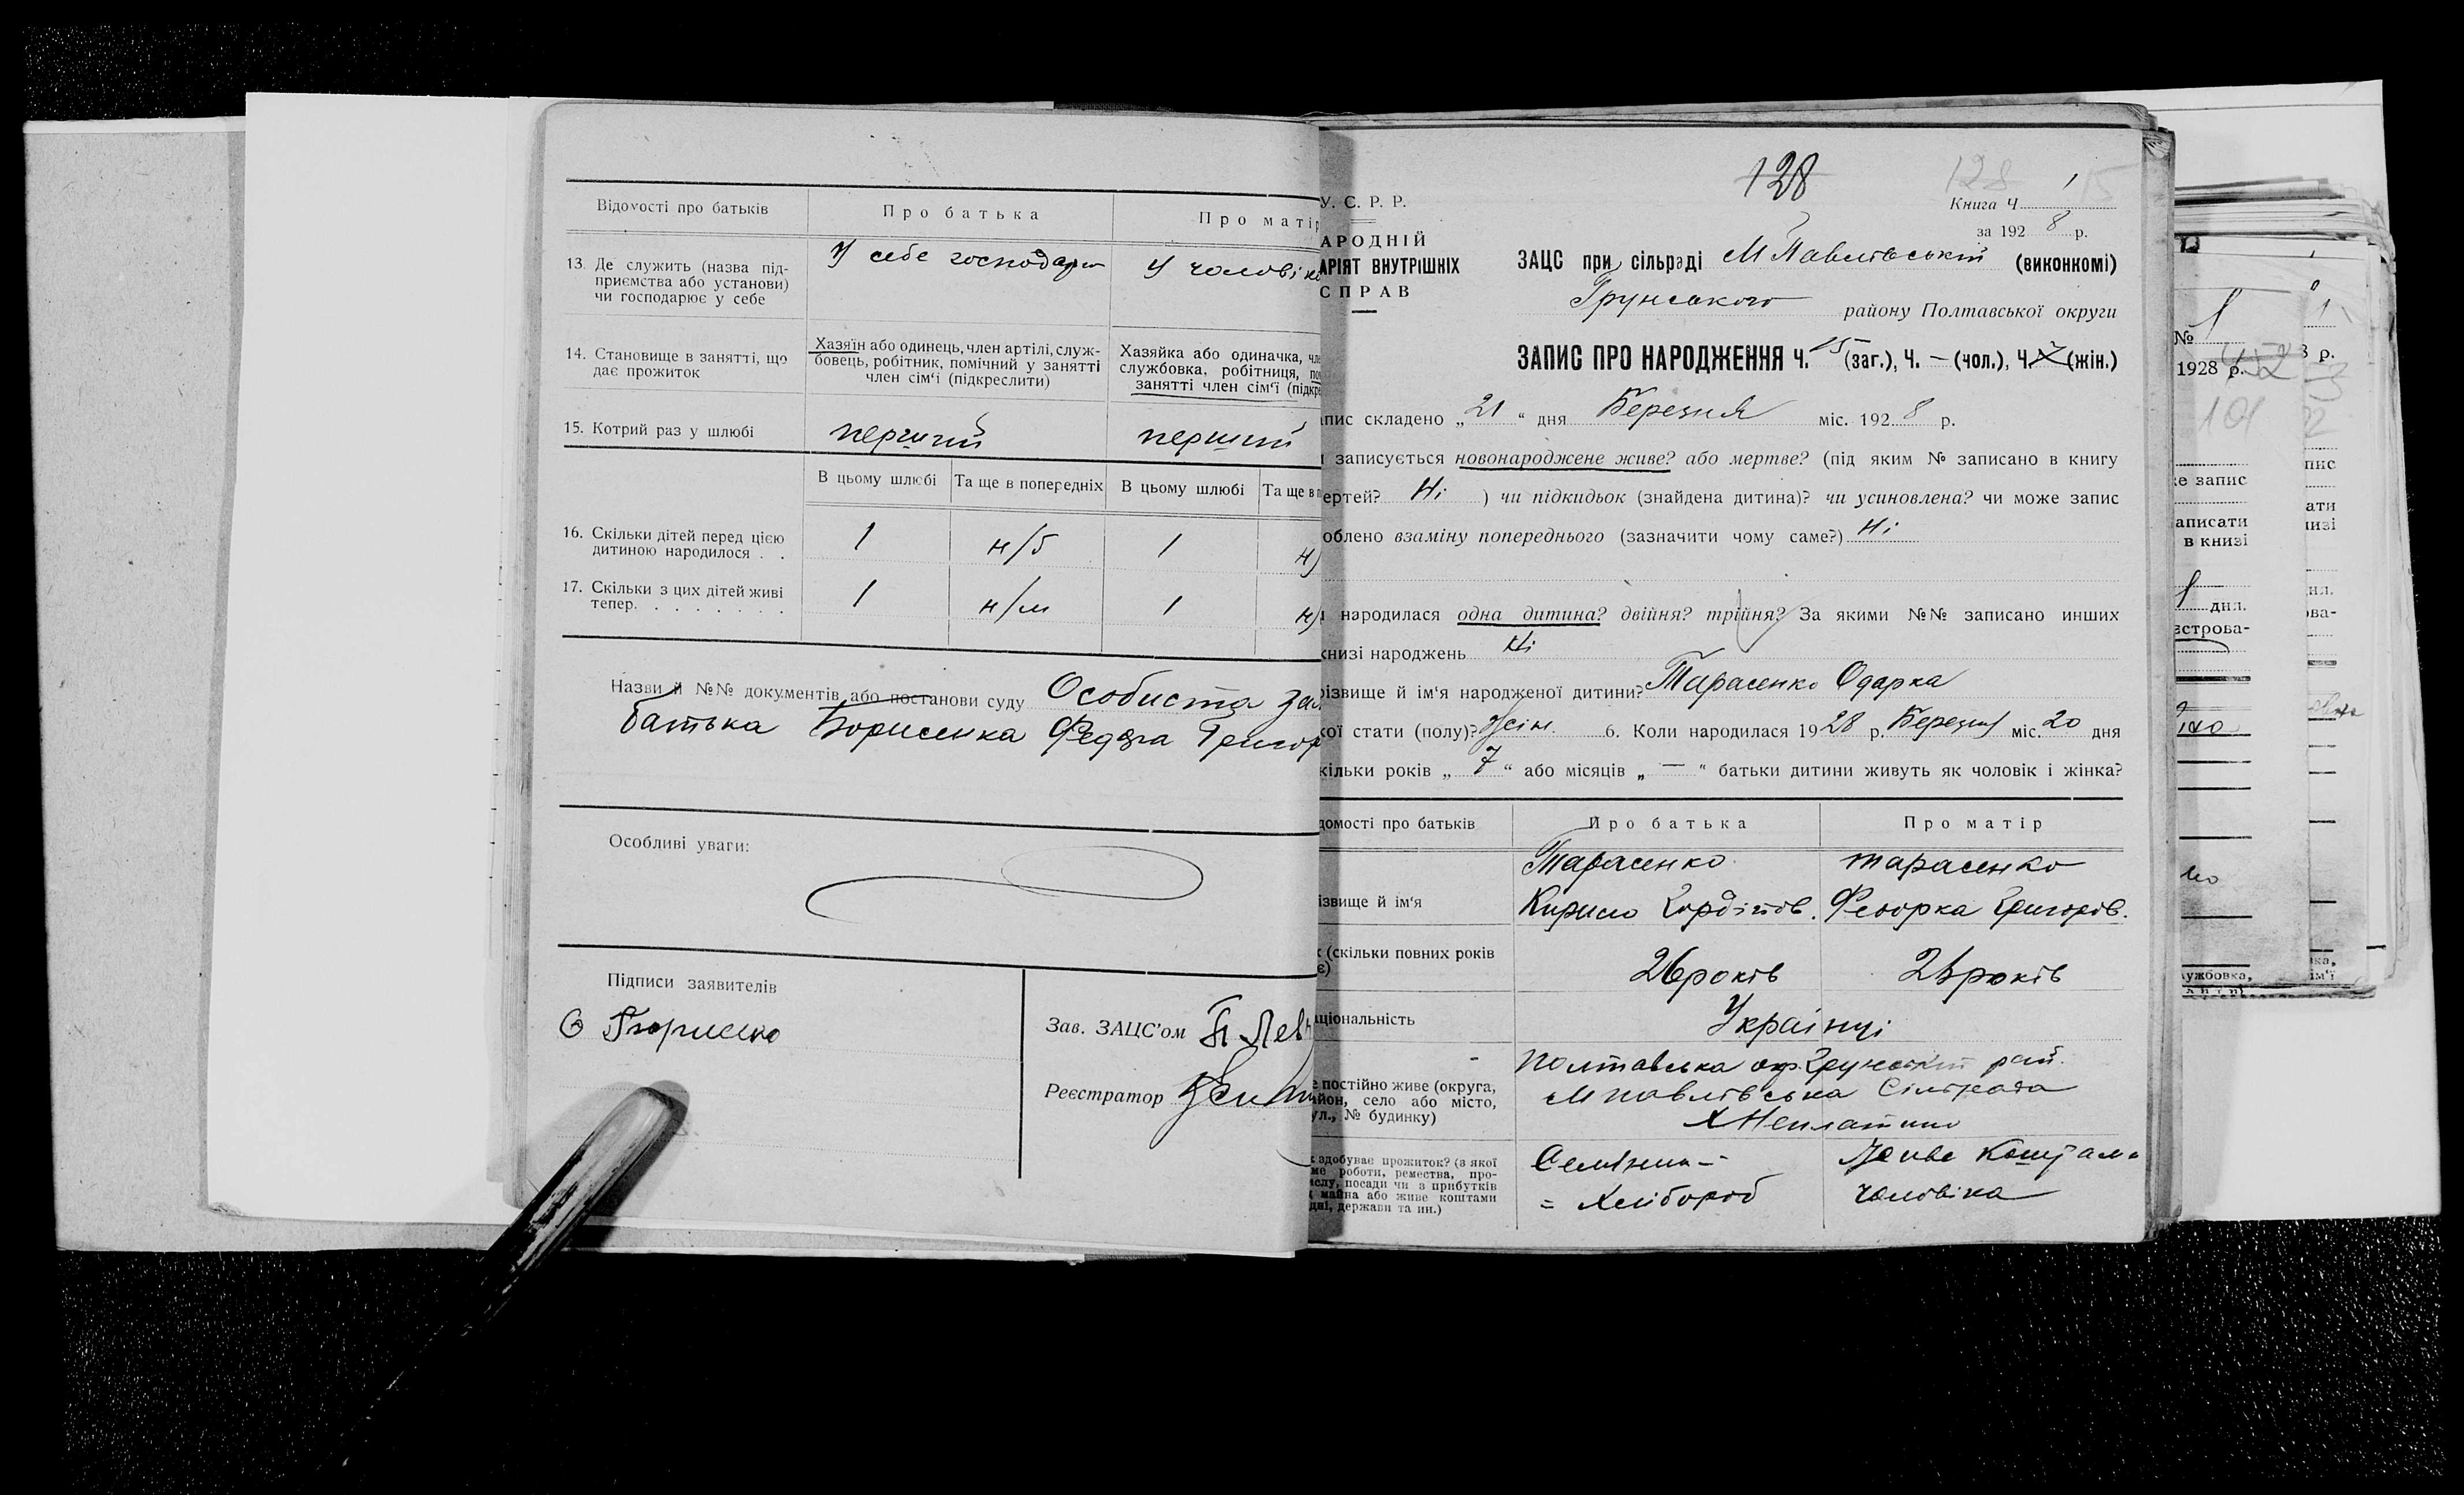 Відомості про батьків
Про батька
Про матір
13. Де служить (назва під-
приємства або установи)
чи господарює у себе
У себе господарю
У чоловіка
14. Становище в занятті, що
дає прожиток
Хазяїн або одинець, член артілі, служ-
бовець, робітник, помічний у занятті
член сім'ї (підкреслити)
Хазяйка або одиначка,
службовка, робітниця,
занятті член сім'ї
15. Котрий раз у шлюбі
перший
перший
В цьому шлюбі
Та ще в попередніх
В цьому шлюбі
Та ще в
16. Скільки дітей перед цією
дитиною народилося . .
1
н/б
1
17. Скільки з цих дітей живі
тепер. . . . . . . .
1
н/м
1
Назви й №№ документів або постанови суду Особиста
батька Борисенка Федора Григор
Особливі уваги:
Підписи заявителів
Зав. ЗАЦС'ом
Реєстратор
128
128
15
У. С. Р. Р.
АРОДНІЙ
АРІЯТ ВНУТРІШНІХ
СПРАВ
Книга Ч. 1
за 192 8 р.
ЗАЦС при сільраді М Павлівській (виконкомі)
Грунського району Полтавської округи
ЗАПИС ПРО НАРОДЖЕННЯ Ч. 15 (заг.), Ч. — (чол.), Ч. 7 (жін.)
пис складено „ 21 “ дня Березня міс. 192 8 р.
записується новонароджене живе? або мертве? (під яким № записано в книгу
ертей? Ні ) чи підкидьок (знайдена дитина)? чи усиновлена? чи може запис
облено взаміну попереднього (зазначити чому саме?) Ні
народилася одна дитина? двійня? трійня? За якими №№ записано инших
книзі народжень Ні
різвище й ім'я народженої дитини? Тарасенко Одарка
кої стати (полу)? жін. 6. Коли народилася 19 28 р. Березня міс. 20 дня
кільки років „ 7 “ або місяців „ — “ батьки дитини живуть як чоловік і жінка?
домості про батьків
Про батька
Про матір
ізвище й ім'я
Тарасенко
Кирило Гордійов.
Тарасенко
Феворка Григоров.
(скільки повних років
є)
26 років
2 років
ціональність
Українці
постійно живе (округа,
йон, село або місто,
ул., № будинку)
Полтавська окр. Грунський рай.
М павлівська Сільрада
здобуває прожиток? (з якої
ме роботи, ремества, про-
ислу, посади чи з прибутків
майна або живе коштами
дні, держави та ин.)
Селянин -
= Хлібороб
Живе коштами
чоловіка
№ 1
1928 р.
е запис
аписати
в книзі
дня.
єстрова-
ужбовка,